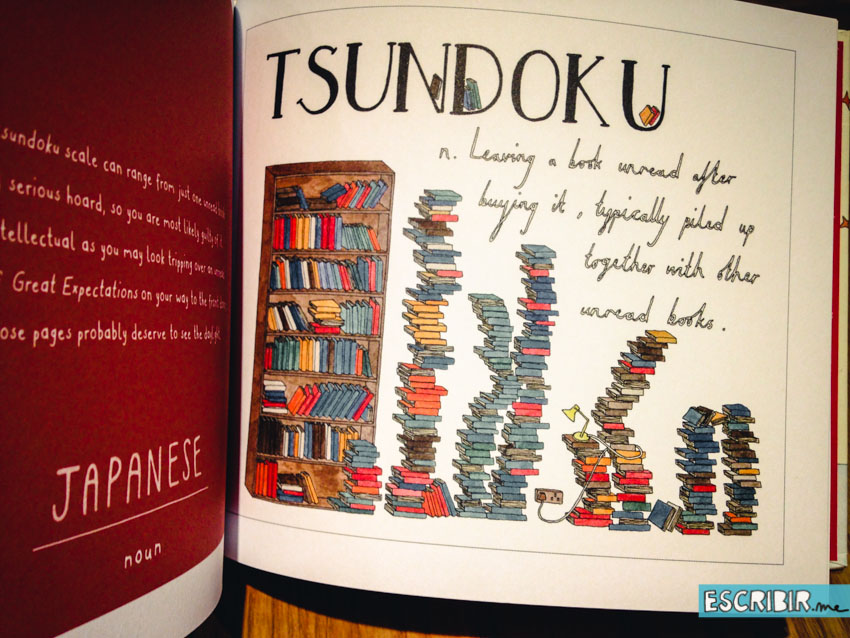 sundoku scale can range from just one unread
serious hoard, so you are most likely guilty of it
tellectual as you may look tripping over an
Great Expectations on your way to the front
ose pages probably deserve to see the
JAPANESE
noun
TSUNDOKU
n. Leaving a book unread after
buying it, typically piled up
together with other
unread books.
ESCRIBIR.me